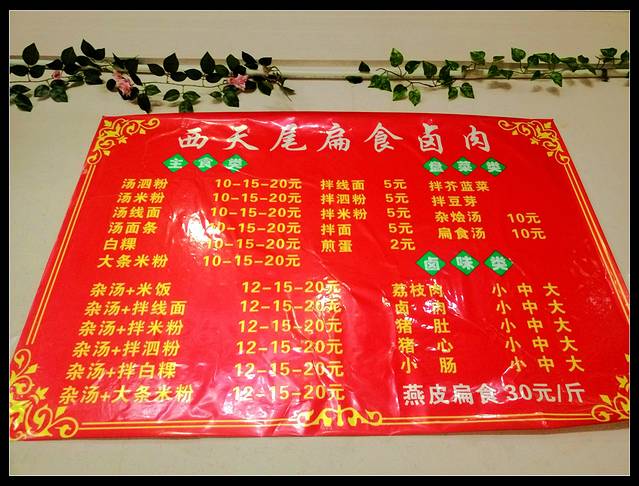 西天尾扁食卤肉
主食类
汤泗粉 10-15-20元
汤米粉 10-15-20元
汤线面 10-15-20元
汤面条 10-15-20元
白粿 10-15-20元
大条米粉 10-15-20元
拌线面 5元
拌泗粉 5元
拌米粉 5元
拌面 5元
煎蛋 2元
盘菜类
拌芥蓝菜
拌豆芽
杂烩汤 10元
扁食汤 10元
杂汤+米饭 12-15-20元
杂汤+拌线面 12-15-20元
杂汤+拌米粉 12-15-20元
杂汤+拌泗粉 12-15-20元
杂汤+拌白粿 12-15-20元
杂汤+大条米粉 12-15-20元
卤味类
荔枝肉 小 中 大
卤 小 中 大
猪肚 小 中 大
猪心 小 中 大
小肠 小 中 大
燕皮扁食 30元/斤